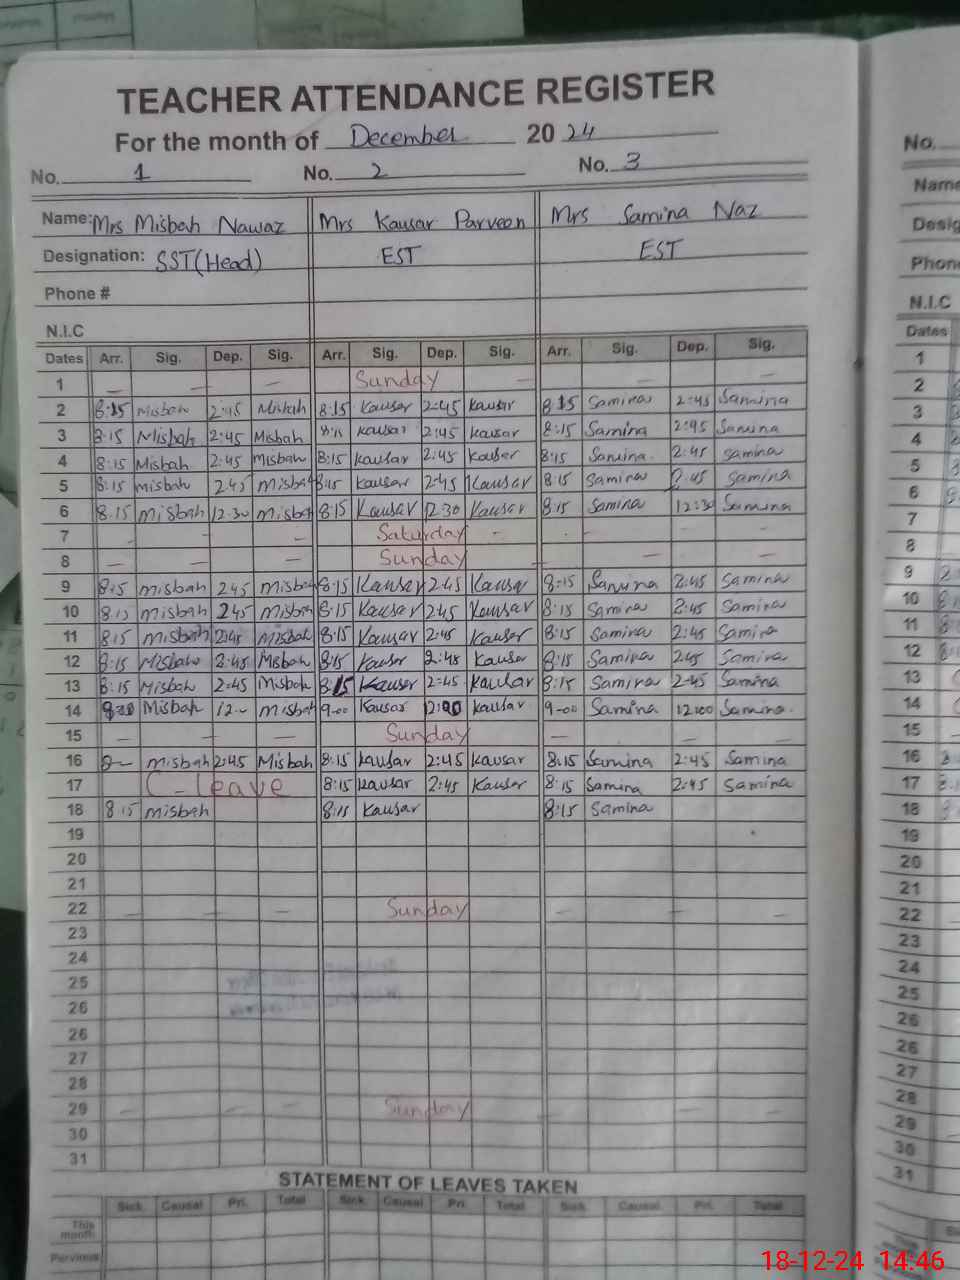 TEACHER ATTENDANCE REGISTER
For the month of December 2024
No. 1 No. 2 No. 3
Name: Mrs Misbah Nawaz Mrs Kausar Parveen Mrs Samina Naz
Designation: SST(Head) EST EST
Phone #
N.I.C
Dates Arr. Sig. Dep. Sig. Arr. Sig. Dep. Sig. Arr. Sig. Dep. Sig.
1 — — — Sunday — — —
2 8:15 Misbah 2:45 Misbah 8:15 Kausar 2:45 Kausar 8:15 Samina 2:45 Samina
3 8:15 Misbah 2:45 Misbah 8:15 Kausar 2:45 Kausar 8:15 Samina 2:45 Samina
4 8:15 Misbah 2:45 Misbah 8:15 Kausar 2:45 Kausar 8:15 Samina 2:45 Samina
5 8:15 Misbah 2:45 Misbah 8:15 Kausar 2:45 Kausar 8:15 Samina 2:45 Samina
6 8:15 Misbah 12:30 Misbah 8:15 Kausar 12:30 Kausar 8:15 Samina 12:30 Samina
7 — — — Saturday — — — —
8 — — — Sunday — — —
9 8:15 misbah 2:45 Misbah 8:15 Kausar 2:45 Kausar 8:15 Samina 2:45 Samina
10 8:15 misbah 2:45 misbah 8:15 Kausar 2:45 Kausar 8:15 Samina 2:45 Samina
11 8:15 misbah 2:45 Misbah 8:15 Kausar 2:45 Kausar 8:15 Samina 2:45 Samina
12 8:15 Misbah 2:45 Misbah 8:15 Kausar 2:45 Kausar 8:15 Samina 2:45 Samina
13 8:15 Misbah 2:45 Misbah 8:15 Kausar 2:45 Kausar 8:15 Samina 2:45 Samina
14 Misbah misbah 9-00 Kausar 12:00 Kausar 9-00 Samina 12:00 Samina
15 — — — Sunday — — —
16 8— misbah 2:45 Misbah 8:15 Kausar 2:45 Kausar 8:15 Samina 2:45 Samina
17 C-leave 8:15 Kausar 2:45 Kausar 8:15 Samina 2:45 Samina
18 8:15 misbah 8:15 Kausar 8:15 Samina
19
20
21
22 — — — Sunday — — —
23
24
25
26
26
27
28
29 — — — Sunday — — —
30
31
STATEMENT OF LEAVES TAKEN
Sick Causal Pri. Total Sick Causal Pri. Total Sick Causal Pri. Total
This month
Pervious
No.
Name
Desig
Phon
N.I.C
Dates
1
2
3
4
5
6
7
8
9
10
11
12
13
14
15
16
17
18
19
20
21
22
23
24
25
26
26
27
28
29
30
31
18-12-24 14:46